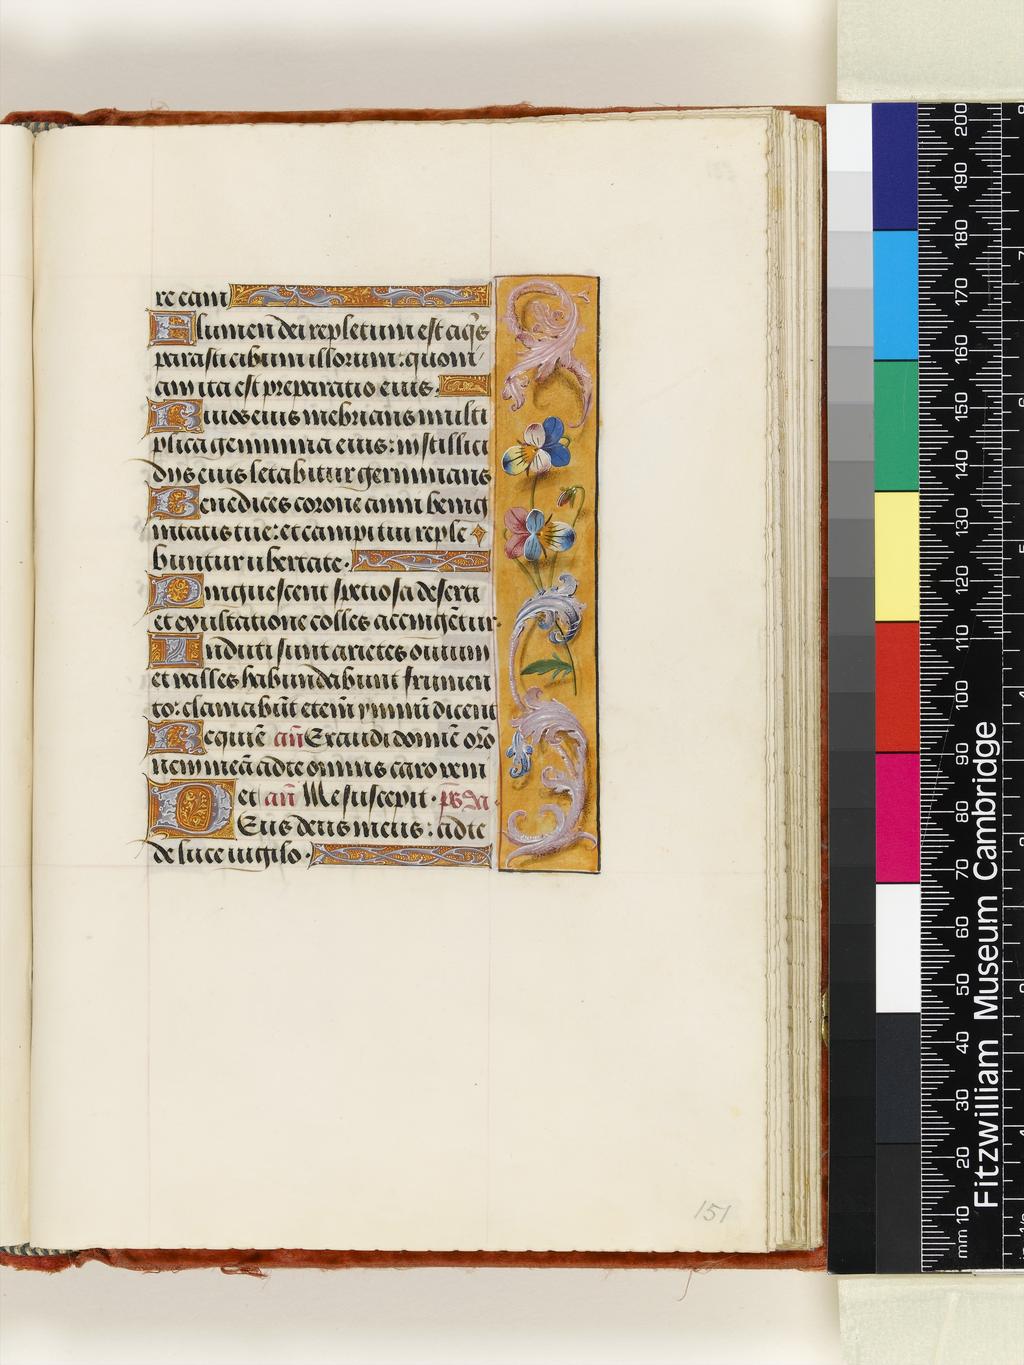 re eam
Flumen dei repletum est aq̃s
parasti cibum illorum: quoni
am ita est preparatio eius.
Riuos eius inebrians multi
plica genimina eius: in stillici
dijs eius letabitur germinans
Benedices corone anni benig
nitatis tue: et campi tui reple
buntur ubertate.
Pinguescent speciosa deserti
et exultatione colles accingẽtur.
Induti sunt arietes ouium
et valles habundabunt frumen
to: clamabũt etem̃ ymnũ dicent
Requiẽ añ Exaudi domĩe oro
nem meã ad te omnis caro veni
et añ Me suscepit. ps
Deus deus meus: ad te
de luce uigilo.
151
Fitzwilliam Museum Cambridge
mm 10 20 30 40 50 60 70 80 90 100 110 120 130 140 150 160 170 180 190 200